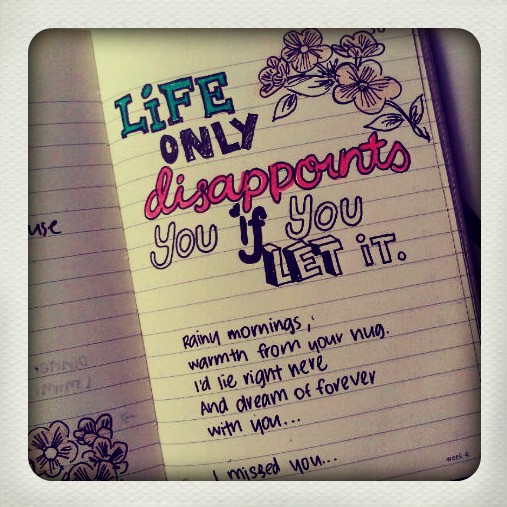 use
LiFE
ONLY
disappoints
YOU if YOU
LET iT.
Rainy mornings,
warmth from your hug.
I'd lie right here
And dream of forever
with you...
I missed you...
week 6